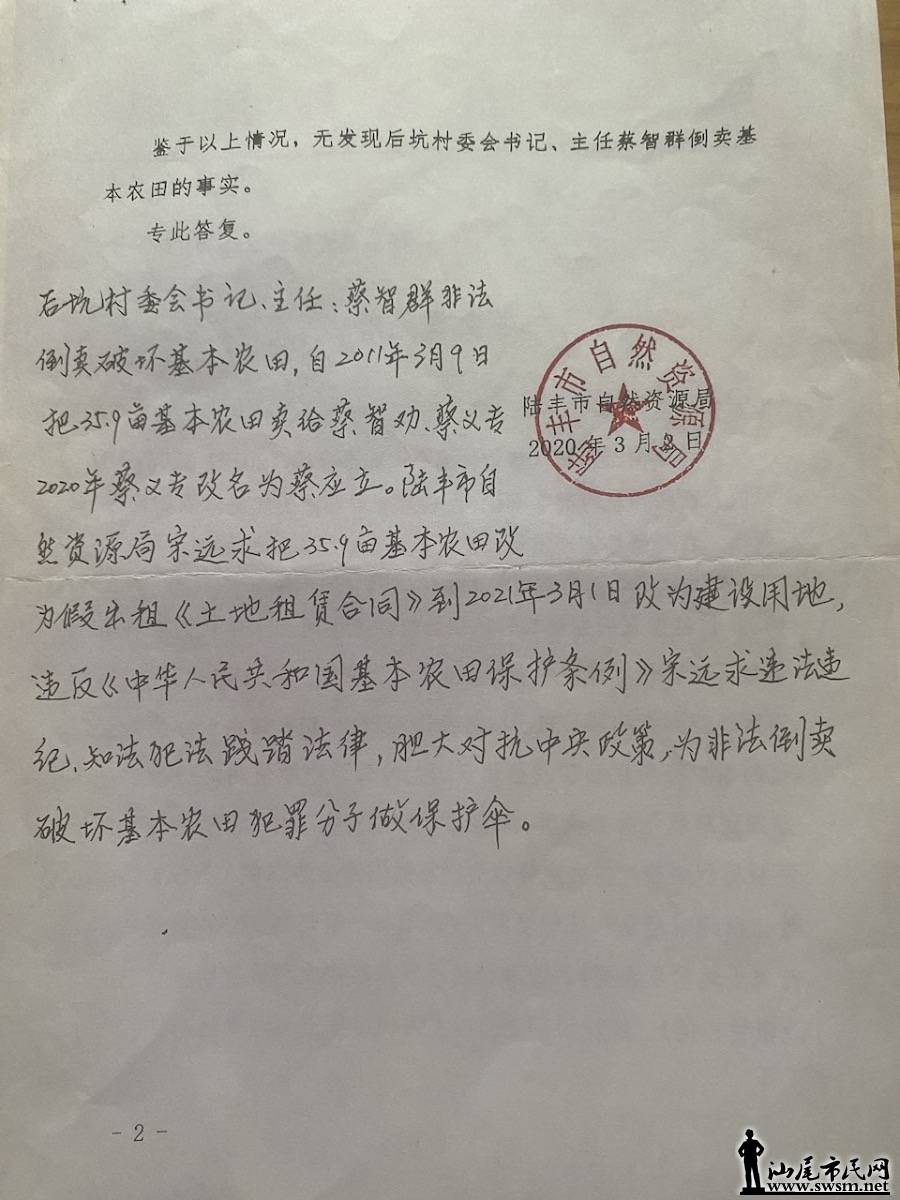 鉴于以上情况，无发现后坑村委会书记、主任蔡智群倒卖基
本农田的事实。
专此答复。
后坑村委会书记、主任：蔡智群非法
倒卖破坏基本农田，自2011年3月9日
把35.9亩基本农田卖给蔡智劝、蔡义专
2020年蔡义专改名为蔡应立。陆丰市自
然资源局宋远求把35.9亩基本农田改
为假出租《土地租赁合同》到2021年3月1日改为建设用地，
违反《中华人民共和国基本农田保护条例》宋远求违法违
纪、知法犯法践踏法律，胆大对抗中央政策，为非法倒卖
破坏基本农田犯罪分子做保护伞。
陆丰市自然资源局
陆丰市自然资源局
2020年3月2日
- 2 -
汕尾市民网
www.swsm.net